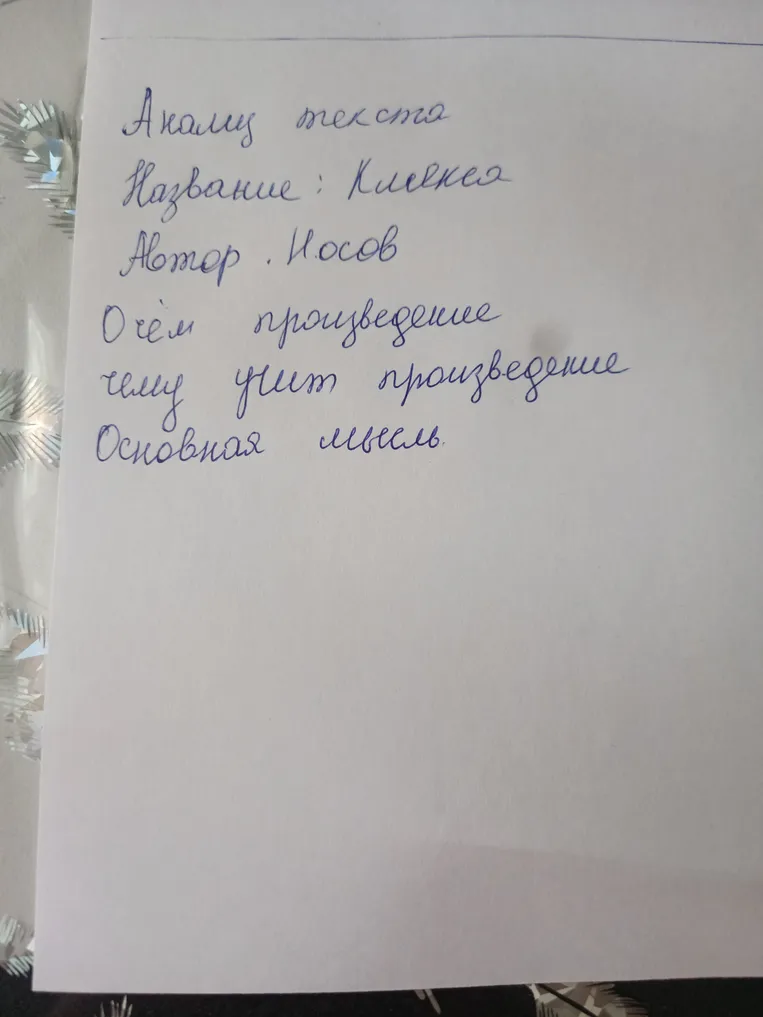 Анализ текста
Название: Клякса
Автор. Носов
О чём произведение
чему учит произведение
Основная мысль.